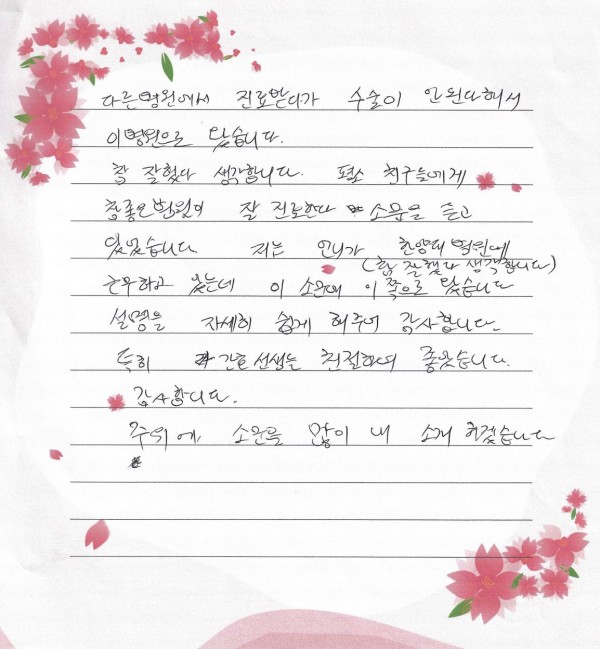 다른병원에서 진료받다가 수술이 안된다해서
이병원으로 왔습니다.
참 잘했다 생각합니다. 평소 친구들에게
참좋은병원이 잘 진료한다 소문을 듣고
있었습니다 저는 언니가 한양대 병원에
(참 잘했다 생각합니다)
근무하고 있는데 이 소문에 이쪽으로 왔습니다
설명을 자세히 쉽게 해주어 감사합니다.
특히 간호 선생님 친절하여 좋았습니다.
감사합니다.
주위에, 소문을 많이 내 소개 하겠습니다